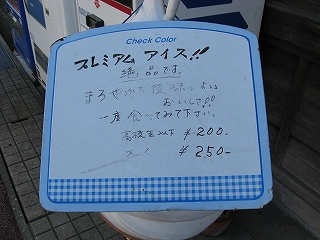 Check Color
プレミアム アイス!!
絶品です。
まろやかで後味もよい
おいしさ!!
一度食べてみて下さい。
高校生以下 ¥200-
大人 ¥250-